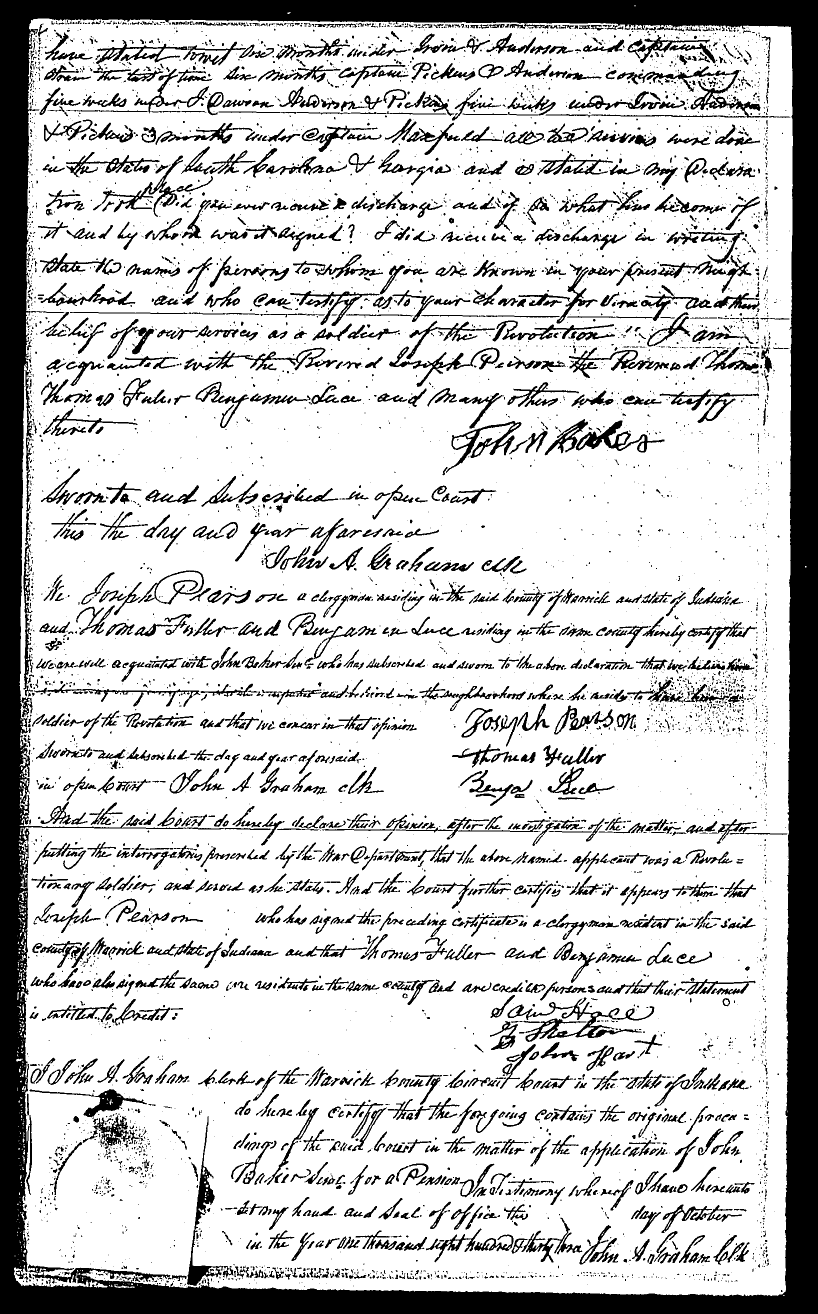 have stated towit one months under Irvin & Anderson and captain
the last of time six months captain Pickens & Anderson commanding
five weeks under J. Dawson Anderson & Pickins five weeks under Irvin Anderson
& Pickens 3 months under captain Maxfield all the services were done
in the States of South Carolina & Gargia and as stated in my Declara
tion took place Did you ever receive a discharge and if so what has become of
it and by whom was it signed? I did receive a discharge in writing
State the names of persons to whom you are known in your present neigh
=bourhood and who can testify as to your character for veracity and their
belief of your services as a soldier of the Revolution " I am
acquanted with the Revered Joseph Pearson the Reverend Thomas
Thomas Fuler Benjamin Luce and many others who can testify
thereto
John Baker
Sworn to and Subscribed in open Court
this the day and year aforesaid
John A. Graham clk
We Joseph Pearson a clergyman residing in the said County of Warrick and state of Indiana
and Thomas Fuller and Benjamen Luce residing in the same county hereby certify that
we are well acquainted with John Baker Senr who has subscribed and sworn to the above declaration that we believe him
and believed in the neighbourhood where he resides to have been a
soldier of the Revolution and that we concur in that opinion
Joseph Pearson
Sworn to and subscribed the day and year aforesaid
Thomas Fuller
in open Court John A Graham clk
Benja Luce
And the said Court do hereby declare their opinion, after the investigation of the matter, and after
putting the interrogatories prescribed by the War Department, that the above named applicant was a Revolu=
tionary soldier, and served as he states. And the Court further certifies that it appears to them that
Joseph Pearson who has signed the preceding certificate is a clergyman resident in the said
county of Warrick and state of Indiana and that Thomas Fuller and Benjamin Luce
who have also signed the same are residents in the same county and are credible persons and that their statement
is entitled to Credit:
Saml Hall
Shelton
John Hart
I John A. Graham Clerk of the Warrick County Circuit Court in the state of Indiana
do hereby certify that the foregoing contains the original procee=
dings of the said Court in the matter of the application of John
Baker Senr. for a Pension In Testimony whereof I have hereunto
set my hand and Seal of Office the day of October
in the Year one thousand eight hundred & thirty three John A. Graham Clk